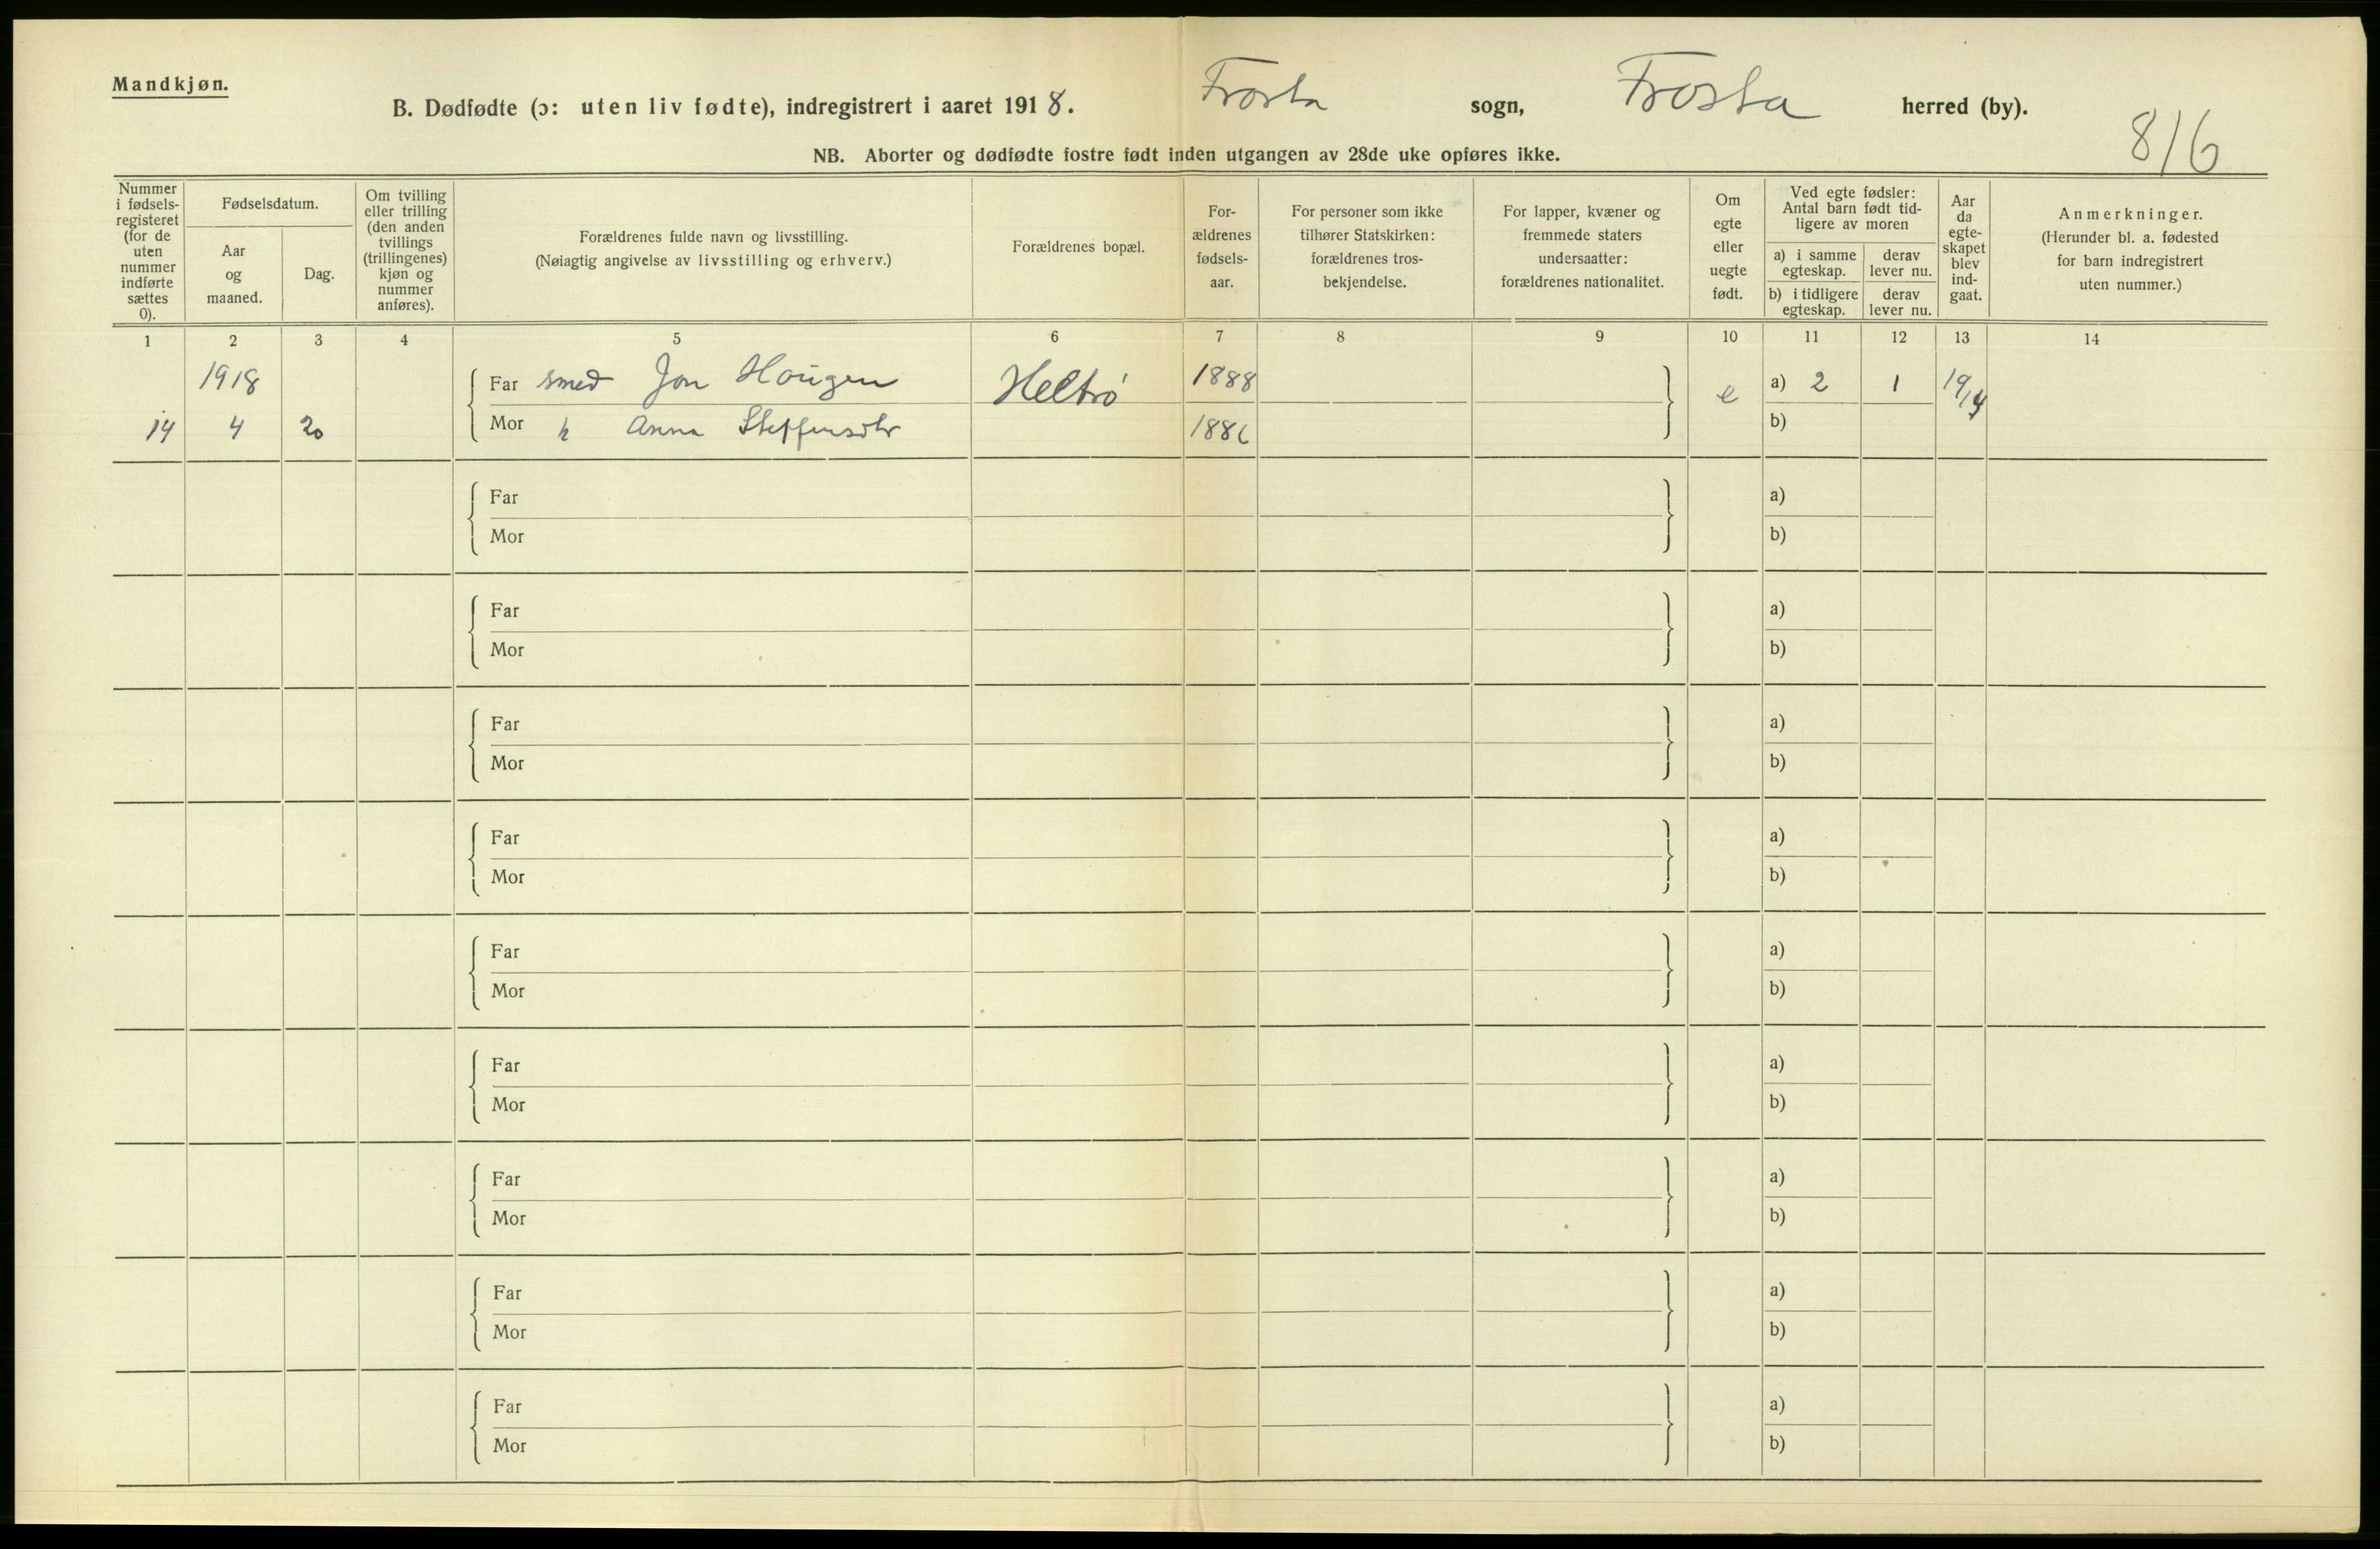 Mandkjøn.
B. Dødfødte (ɔ: uten liv fødte), indregistrert i aaret 1918. Frosta sogn, Frosta herred (by).
816
NB. Aborter og dødfødte fostre født inden utgangen av 28de uke opføres ikke.
Nummer
i fødsels-
registeret
(for de
uten
nummer
indførte
sættes
0).
Fødselsdatum.
Aar
og
maaned.
Dag.
Om tvilling
eller trilling
(den anden
tvillings
(trillingenes)
kjøn og
nummer
anføres).
Forældrenes fulde navn og livsstilling.
(Nøiagtig angivelse av livsstilling og erhverv.)
Forældrenes bopæl.
For-
ældrenes
fødsels-
aar.
For personer som ikke
tilhører Statskirken:
forældrenes tros-
bekjendelse.
For lapper, kvæner og
fremmede staters
undersaatter:
forældrenes nationalitet.
Om
egte
eller
uegte
født.
Ved egte fødsler:
Antal barn født tid-
ligere av moren
a) i samme
egteskap.
derav
lever nu.
b) i tidligere
egteskap.
derav
lever nu.
Aar
da
egte-
skapet
blev
ind-
gaat.
Anmerkninger.
(Herunder bl. a. fødested
for barn indregistrert
uten nummer.)
1 2 3 4 5 6 7 8 9 10 11 12 13 14
1918 Far smed Jon Hougen Heltrö 1888 e a) 2 1 19/14
14 4 20 Mor h Anna Steffensdtr 1886 b)
Far a)
Mor b)
Far a)
Mor b)
Far a)
Mor b)
Far a)
Mor b)
Far a)
Mor b)
Far a)
Mor b)
Far a)
Mor b)
Far a)
Mor b)
Far a)
Mor b)